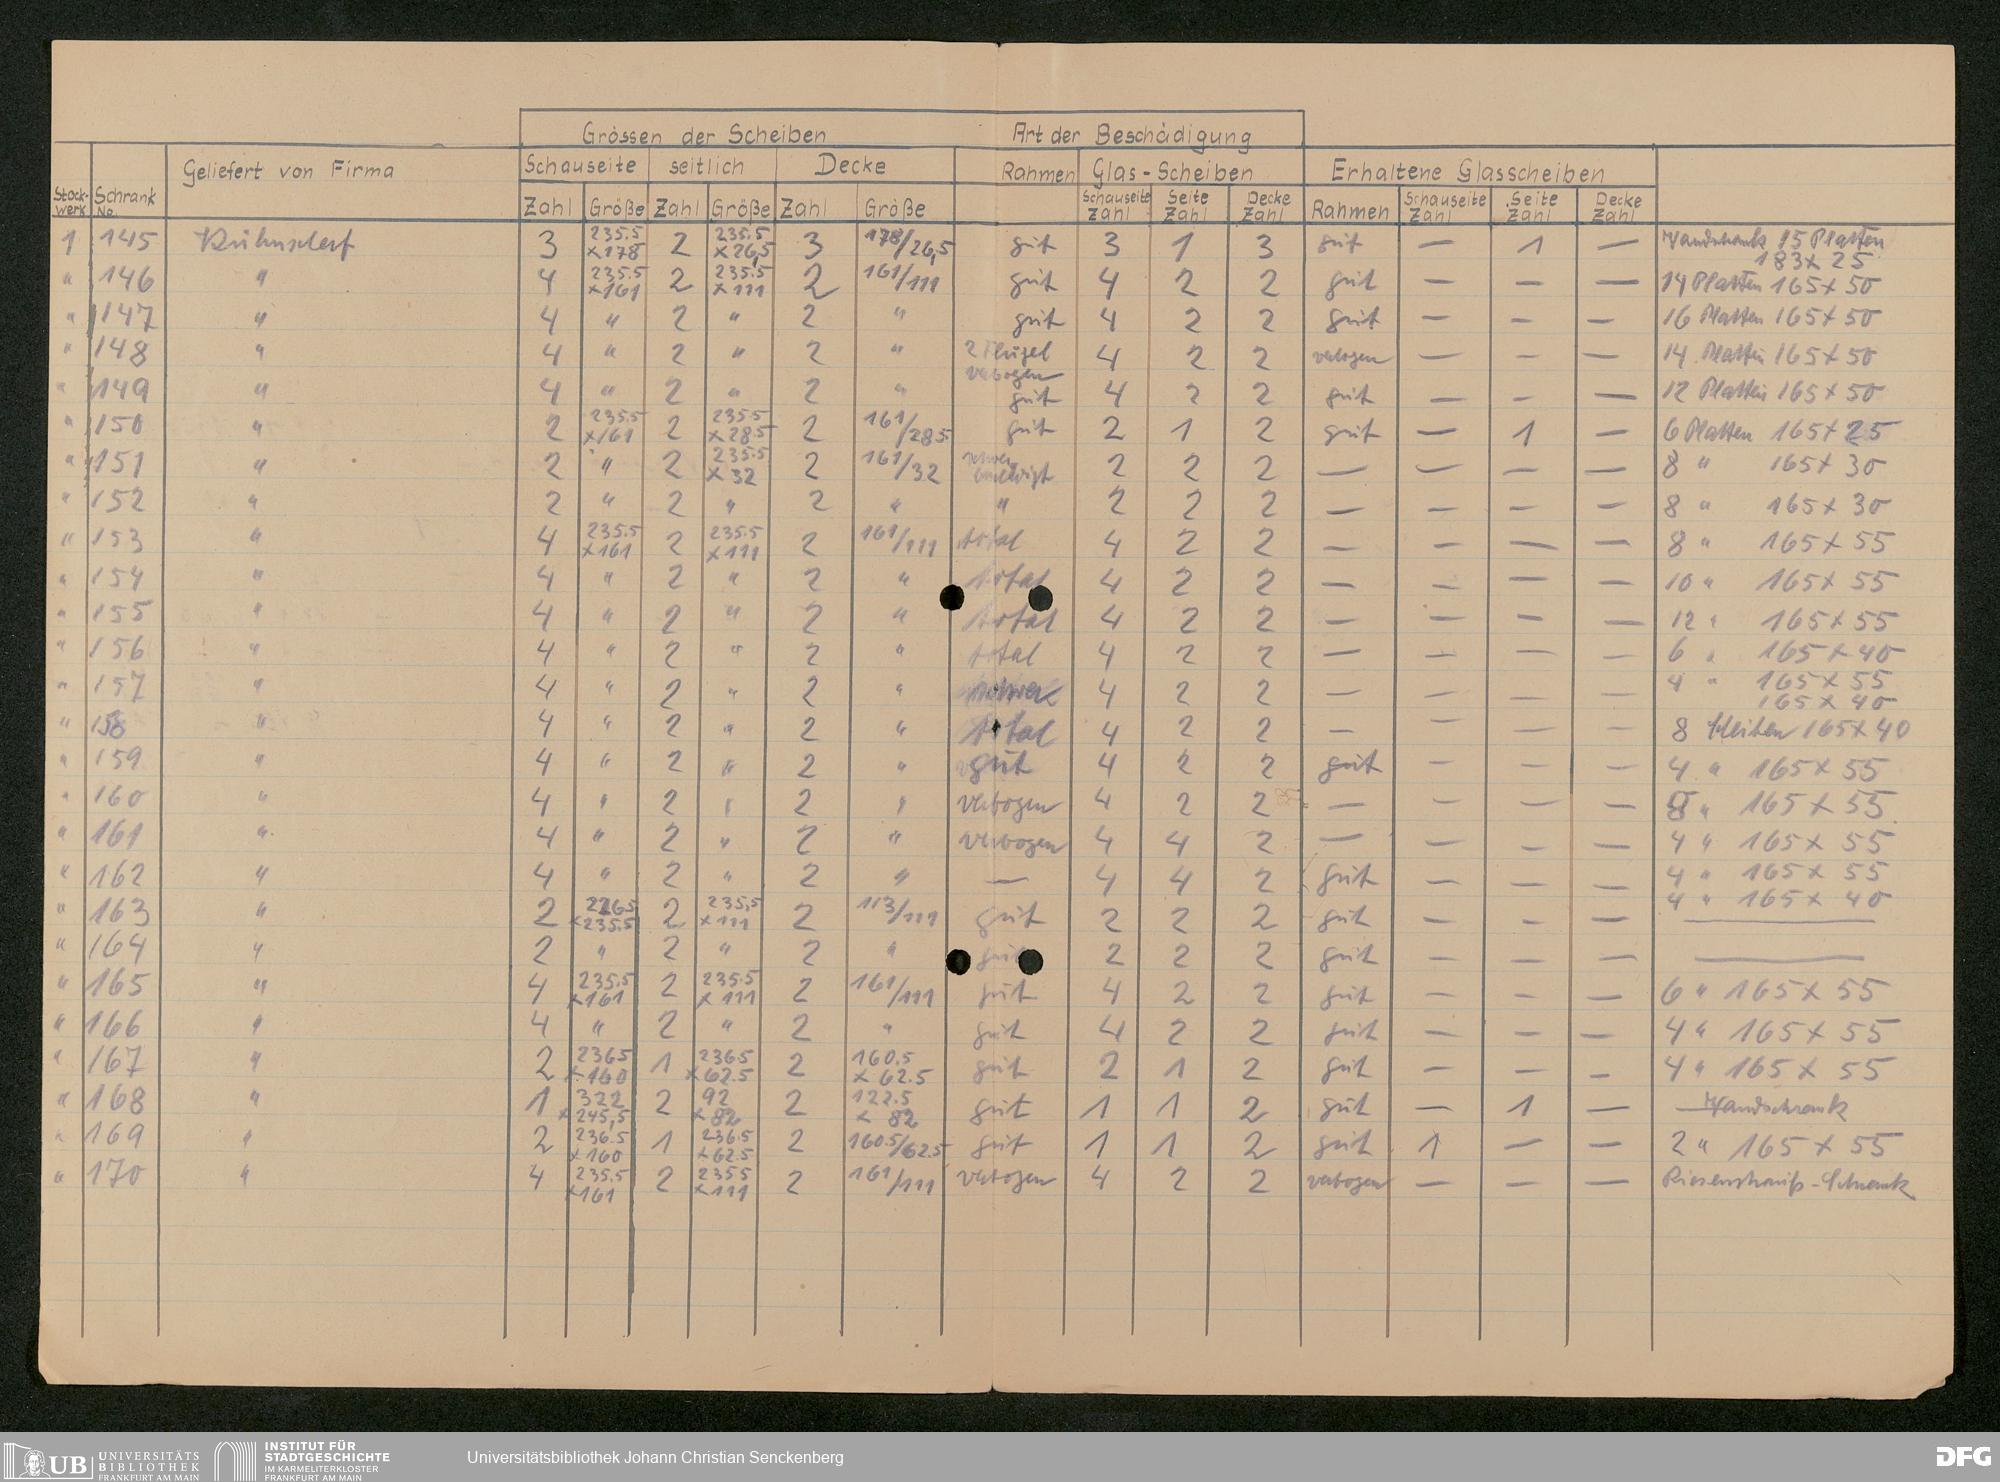 Grössen der Scheiben Art der Beschädigung
Geliefert von Firma Schauseite seitlich Decke Rahmen Glas-Scheiben Erhaltene Glasscheiben
Stock-werk Schrank No. Zahl Größe Zahl Größe Zahl Größe Schauseite Zahl Seite Zahl Decke Zahl Rahmen Schauseite Zahl Seite Zahl Decke Zahl
1 145 Kühnscherf 3 235.5 × 178 2 235.5 × 26,5 3 178/26,5 gut 3 1 3 gut — 1 — Wandschrank 15 Platten 183 × 25
" 146 " 4 235.5 × 161 2 235.5 × 111 2 161/111 gut 4 2 2 gut — — — 14 Platten 165 × 50
" 147 " 4 " 2 " 2 " gut 4 2 2 gut — — — 16 Platten 165 × 50
" 148 " 4 " 2 " 2 " 2 Flügel verbogen 4 2 2 verbogen — — — 14 Platten 165 × 50
" 149 " 4 " 2 " 2 " gut 4 2 2 gut — — — 12 Platten 165 × 50
" 150 " 2 235.5 × 161 2 235.5 × 28.5 2 161/28.5 gut 2 1 2 gut — 1 — 6 Platten 165 × 25
" 151 " 2 " 2 235.5 × 32 2 161/32 2 2 2 — — — — 8 " 165 × 30
" 152 " 2 " 2 " 2 " " 2 2 2 — — — — 8 " 165 × 30
" 153 " 4 235.5 × 161 2 235.5 × 111 2 161/111 total 4 2 2 — — — — 8 " 165 × 55
" 154 " 4 " 2 " 2 " total 4 2 2 — — — — 10 " 165 × 55
" 155 " 4 " 2 " 2 " total 4 2 2 — — — — 12 " 165 × 55
" 156 " 4 " 2 " 2 " total 4 2 2 — — — — 6 " 165 × 40
" 157 " 4 " 2 " 2 " schwer 4 2 2 — — — — 4 " 165 × 55 165 × 40
" 158 " 4 " 2 " 2 " total 4 2 2 — — — — 8 Scheiben 165 × 40
" 159 " 4 " 2 " 2 " gut 4 2 2 gut — — — 4 " 165 × 55
" 160 " 4 " 2 " 2 " verbogen 4 2 2 — — — — 8 " 165 × 55
" 161 " 4 " 2 " 2 " verbogen 4 4 2 — — — — 4 " 165 × 55
" 162 " 4 " 2 " 2 " — 4 4 2 gut — — — 4 " 165 × 55 4 " 165 × 40
" 163 " 2 226.5 × 235.5 2 235,5 × 111 2 113/111 gut 2 2 2 gut — — — —
" 164 " 2 " 2 " 2 " gut 2 2 2 gut — — — —
" 165 " 4 235.5 × 161 2 235.5 × 111 2 161/111 gut 4 2 2 gut — — — 6 " 165 × 55
" 166 " 4 " 2 " 2 " gut 4 2 2 gut — — — 4 " 165 × 55
" 167 " 2 236.5 × 160 1 236.5 × 62.5 2 160.5 × 62.5 gut 2 1 2 gut — — — 4 " 165 × 55
" 168 " 1 322 × 245,5 2 92 × 82 2 122.5 × 82 gut 1 1 2 gut — 1 — Wandschrank
" 169 " 2 236.5 × 160 1 236.5 × 62.5 2 160.5/62.5 gut 1 1 2 gut 1 — — 2 " 165 × 55
" 170 " 4 235.5 × 161 2 235.5 × 111 2 161/111 verbogen 4 2 2 verbogen — — — Riesenstrauß-Schrank
UB UNIVERSITÄTS BIBLIOTHEK FRANKFURT AM MAIN
INSTITUT FÜR STADTGESCHICHTE IM KARMELITERKLOSTER FRANKFURT AM MAIN
Universitätsbibliothek Johann Christian Senckenberg
DFG